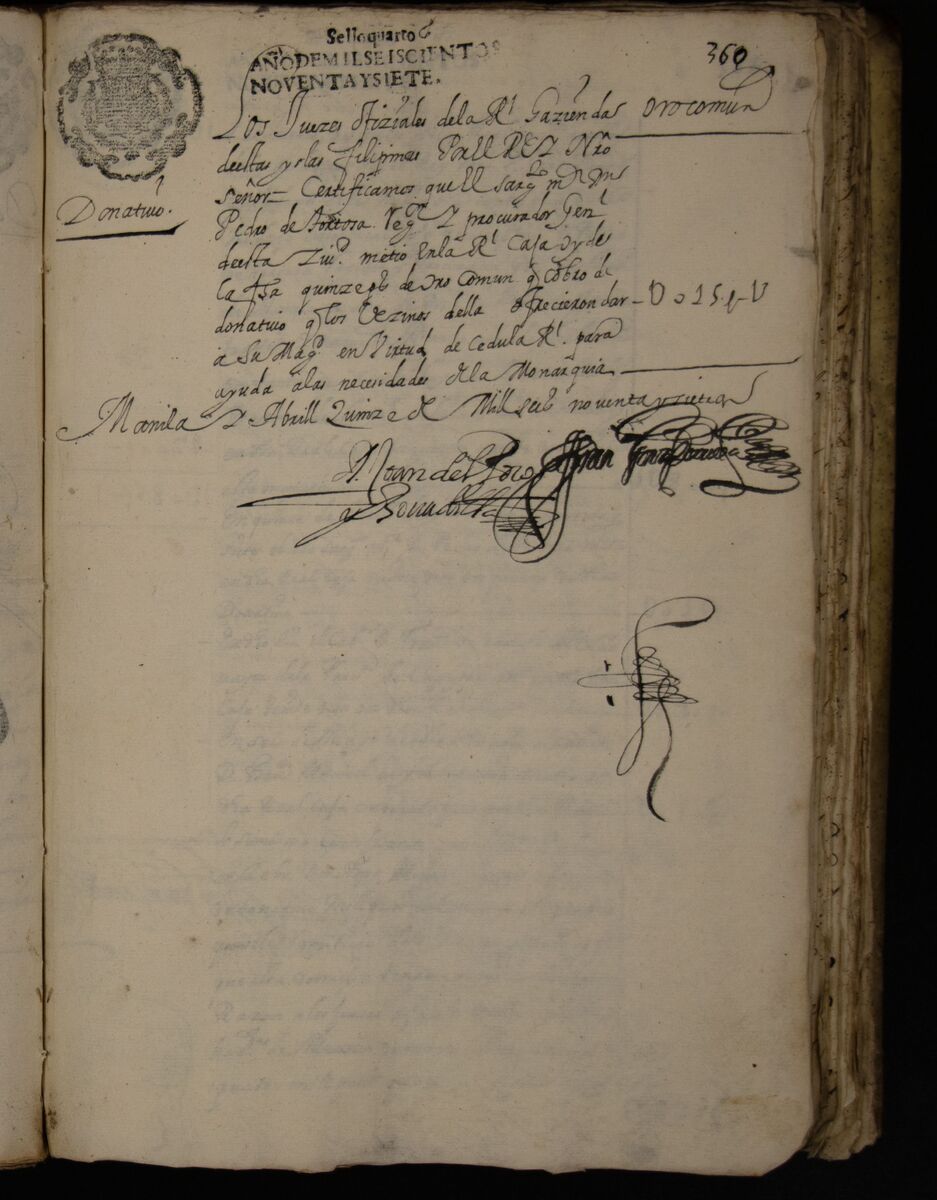 Sello quarto
360
AÑO DE MIL SEISCIENTOS
NOVENTA Y SIETE.
Oro comun
Los Juezes ofiziales de la Rl Hazienda
de estas yslas filipinas Por El REY Nro
señor = Certificamos que El sargto mor Dn
Donativo.
Pedro de Tortosa Regor Y procurador Genl
de esta Ziud metio En la Rl Caja oy dia de
la fha quinze ps de Oro Comun q cobro de
donativo q los Vezinos della ofrecieron dar U015 ps U
a Su Magd en Virtud de Cedula Rl para
ayuda a las necesidades de la Monarquia
Manila Y Abrill Quinze de Mill seiss noventa y siete
D. Juan del Pozo
y